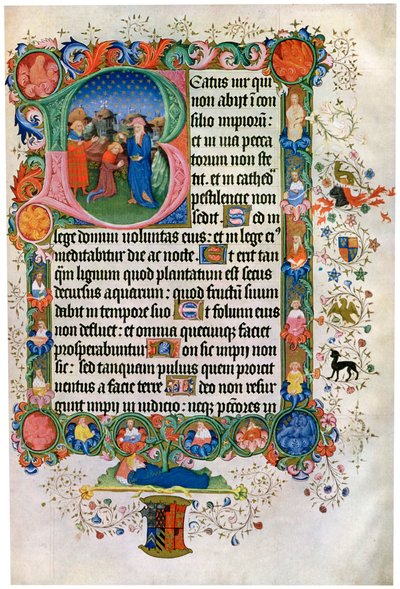 Beatus uir qui
non abijt ī con
silio impioꝝ:
et in uia pecca
torum non ste
tit. et in cathed̄
pestilencie non
sedit. Sed in
lege domini uoluntas eius: et in lege eiꝰ
meditabitur die ac nocte. Et erit tan
q̄m lignum quod plantatum est secus
decursus aquarum: quod fructū suum
dabit in tempore suo Et folium eius
non defluet: et omnia quecunqꝫ faciet
prosperabuntur Non sic impij non
sic: sed tanquam puluis quem proicit
uentus a facie terre Ideo non resur
gunt impij in iudicio: neqꝫ pc̄cores in